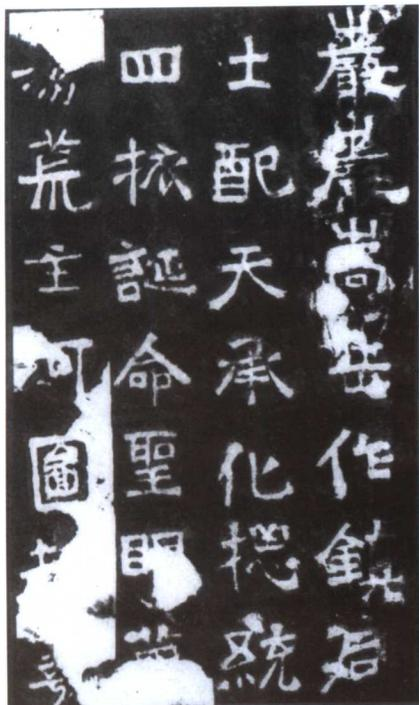 巖巖嵩岳作鎮后
土配天承化揔統
四誕命聖明
荒主河圖